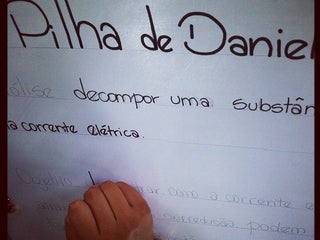 Pilha de Daniel
decompor uma substân
a corrente elétrica.
Objetivo
como a corrente e
podem